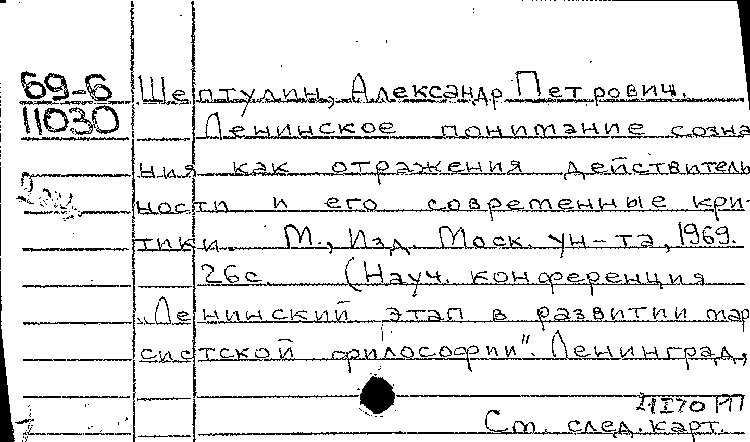 69-6 Шептулин, Александр Петрович.
11030 Ленинское понимание созна
ния как отражения действитель
ности и его современные кри-
тики. М., Изд. Моск. ун-та, 1969.
26с. (Науч. конференция
„Ленинский этап в развитии мар
систской философии". Ленинград,
21I70 РП
См. след. карт.